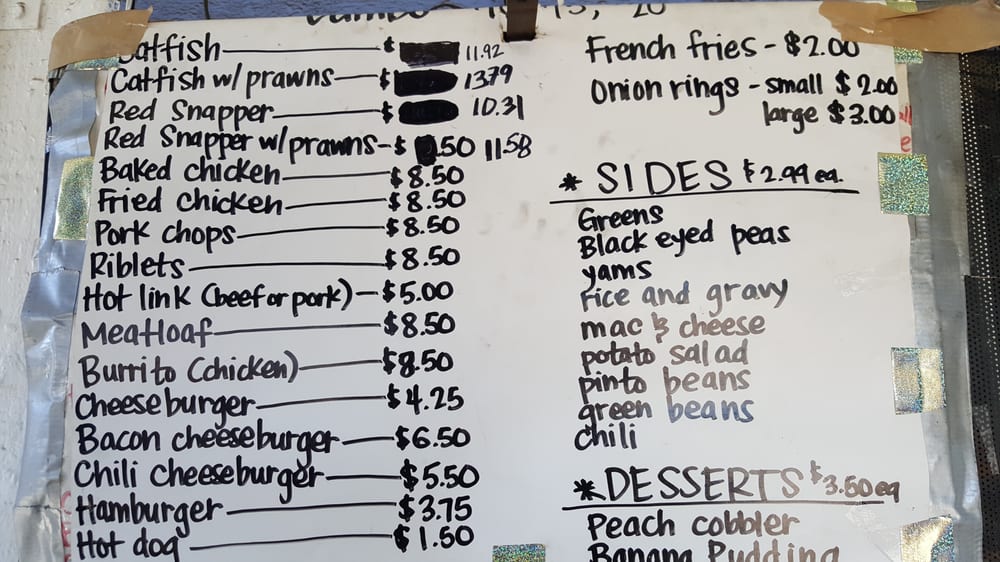 Catfish $ 11.92
Catfish w/ prawns $ 1379
Red Snapper $ 10.31
Red Snapper w/prawns-$ .50 11.58
Baked chicken $8.50
Fried chicken $8.50
Pork chops $8.50
Riblets $8.50
Hot link (beef or pork) - $5.00
Meatloaf $8.50
Burrito (chicken) $8.50
Cheeseburger $4.25
Bacon cheeseburger $6.50
Chili cheeseburger $5.50
Hamburger $3.75
Hot dog $1.50
French fries - $2.00
Onion rings - small $2.00
large $3.00
* SIDES $2.99 ea.
Greens
Black eyed peas
yams
rice and gravy
mac & cheese
potato salad
pinto beans
green beans
chili
*DESSERTS $3.50 ea
Peach cobbler
Banana Pudding